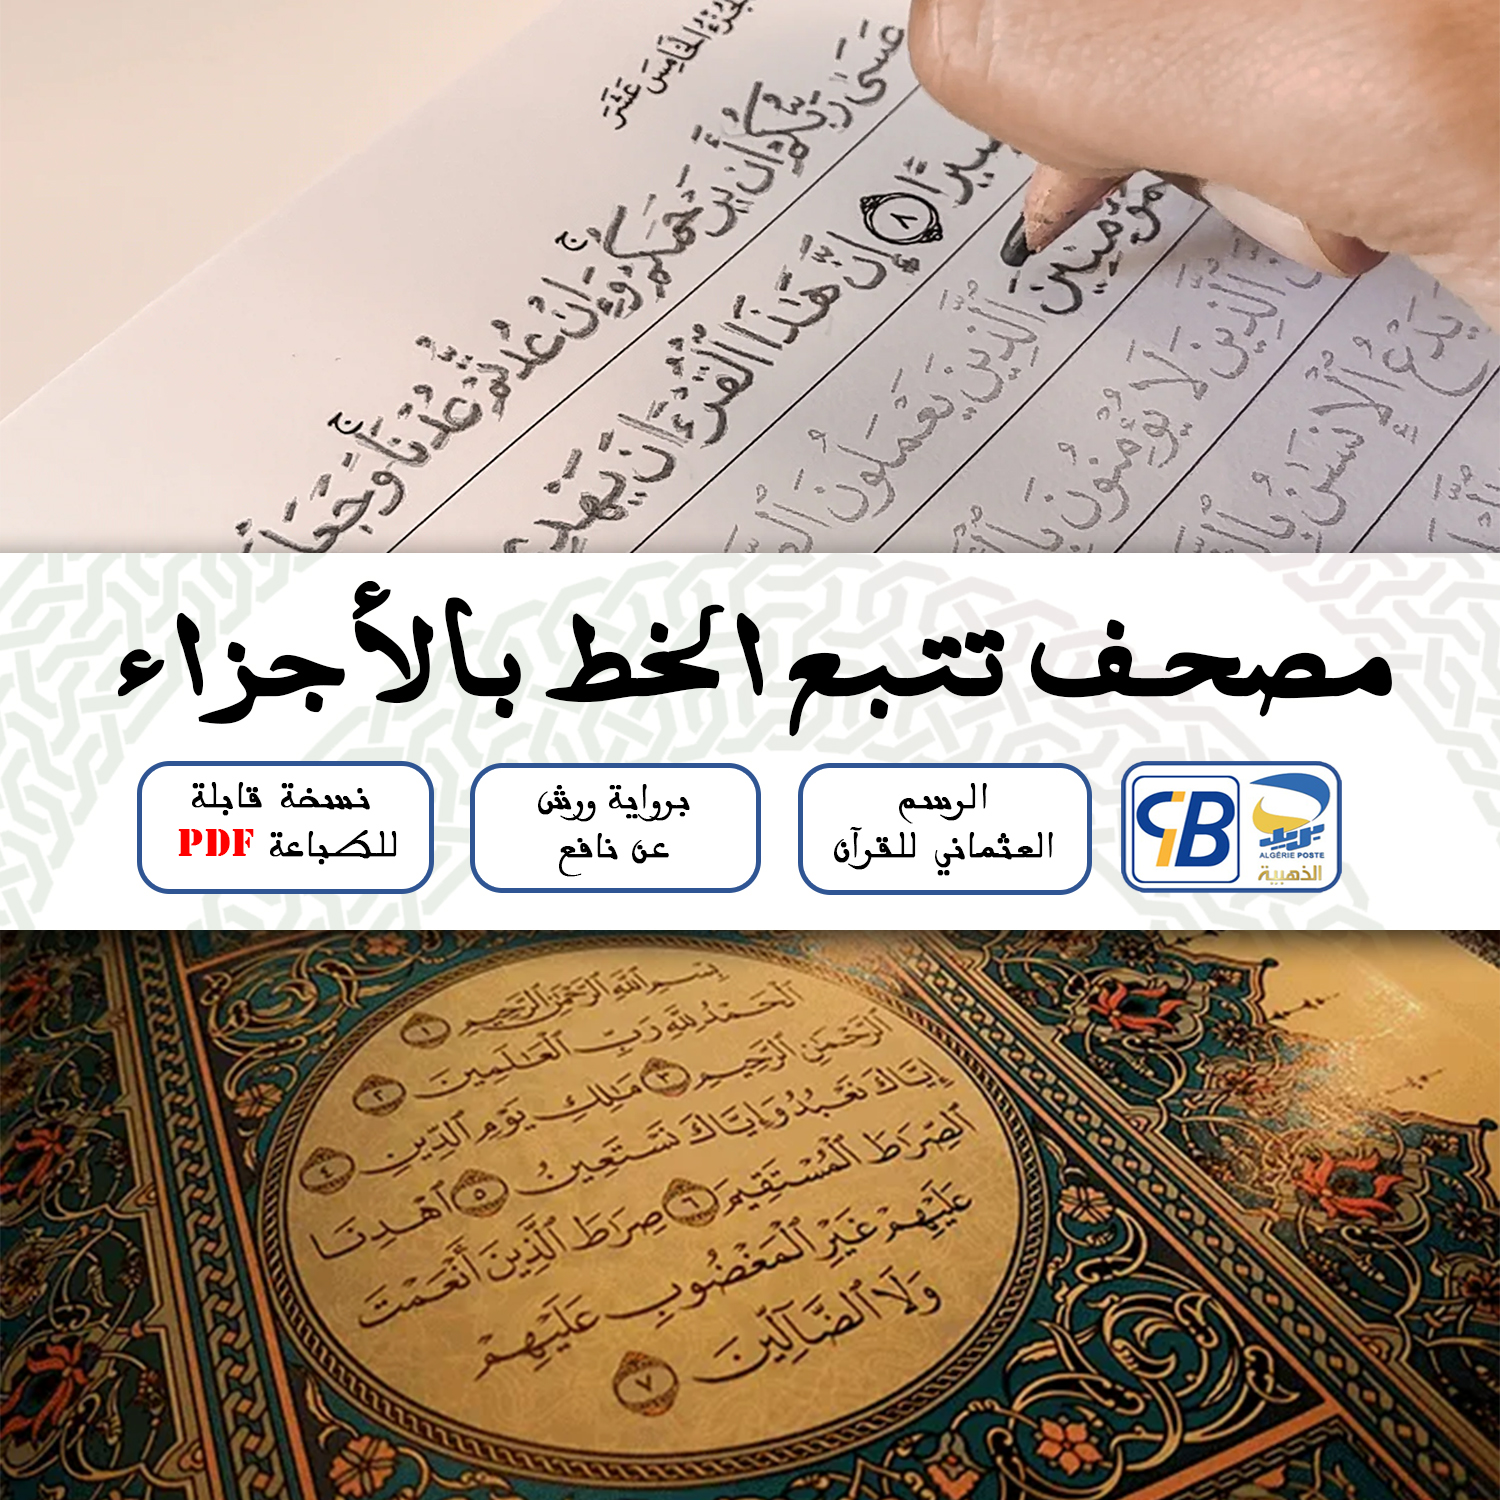 الجزء الخامس عشر
عَسَىٰ رَبُّكُمْ أَنْ يَرْحَمَكُمْ وَإِنْ عُدتُّمْ عُدْنَا وَجَعَلْنَا
إِنَّ هَٰذَا ٱلْقُرْءَانَ يَهْدِي
ٱلَّذِينَ يَعْمَلُونَ
ٱلَّذِينَ لَا يُؤْمِنُونَ
مصحف تتبع الخط بالأجزاء
الرسم
العثماني للقرآن
برواية ورش
عن نافع
نسخة قابلة
للطباعة PDF
CIB
بريد
ALGÉRIE POSTE
الذهبية
بِسْمِ ٱللَّهِ ٱلرَّحْمَٰنِ ٱلرَّحِيمِ ١
ٱلْحَمْدُ لِلَّهِ رَبِّ ٱلْعَٰلَمِينَ ٢
ٱلرَّحْمَٰنِ ٱلرَّحِيمِ ٣ مَٰلِكِ يَوْمِ ٱلدِّينِ ٤
إِيَّاكَ نَعْبُدُ وَإِيَّاكَ نَسْتَعِينُ ٥ ٱهْدِنَا
ٱلصِّرَٰطَ ٱلْمُسْتَقِيمَ ٦ صِرَٰطَ ٱلَّذِينَ أَنْعَمْتَ
عَلَيْهِمْ غَيْرِ ٱلْمَغْضُوبِ عَلَيْهِمْ
وَلَا ٱلضَّآلِّينَ ٧